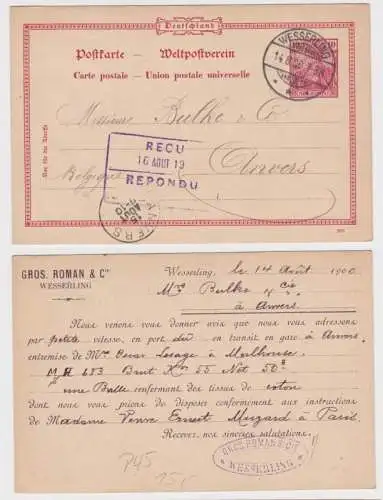 Deutschland
Postkarte — Weltpostverein
Carte postale — Union postale universelle
WESSERLING
14.8.
Nur für die Adresse
Messieurs Bulke & Cie
Anvers
Belgique
REÇU
16 AOUT 19
REPONDU
ANVERS
GROS, ROMAN & Cie
WESSERLING
Wesserling, le 14 Août 1900
Mrs Bulke & Cie
à Anvers
Nous venons vous donner avis que nous vous adressons
par petite vitesse, en port dû en transit en gare à Anvers
entremise de Mr Cesar Lesage à Mulhouse
M.H 683 Brut Kos 55 Net 50 8
une Balle renfermant des tissus de coton
dont nous vous prions de disposer conformément aux instructions
de Madame Veuve Ernest Muzard à Paris
Recevez, nos sincères salutations.
GROS ROMAN & CIE
WESSERLING
P45
15,-